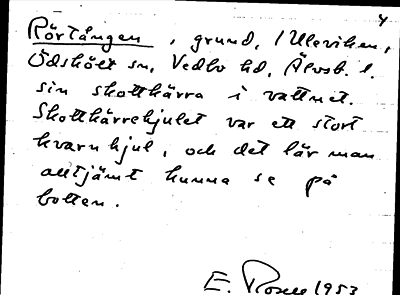 4
Rörtången, grund, i Uleviken,
Ödskölt sn, Vedbo hd, Älvsb. l.
sin skottkärra i vattnet.
Skottkärrehjulet var ett stort
kvarnhjul, och det lär man
alltjämt kunna se på
botten.
E. Rosell 1953